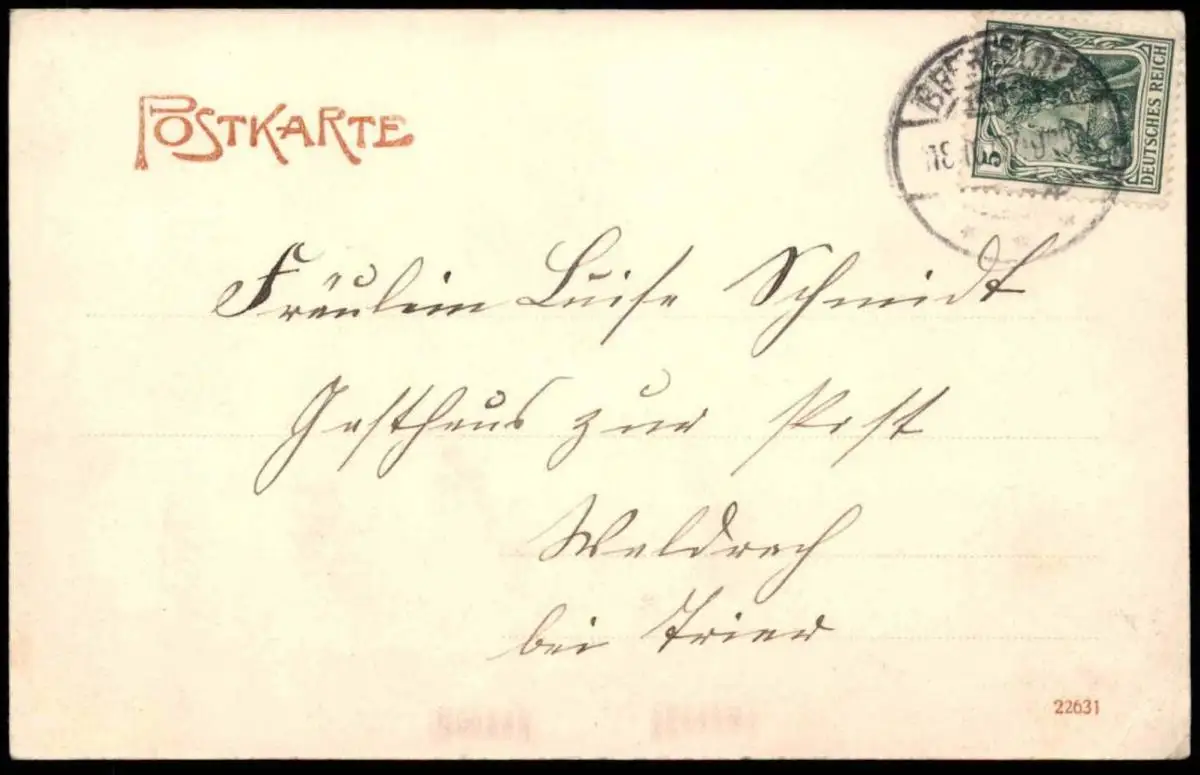 POSTKARTE
5
DEUTSCHES REICH
Fräulein Luise Schmidt
Gasthaus zur Post
Waldrach
bei Trier
22631